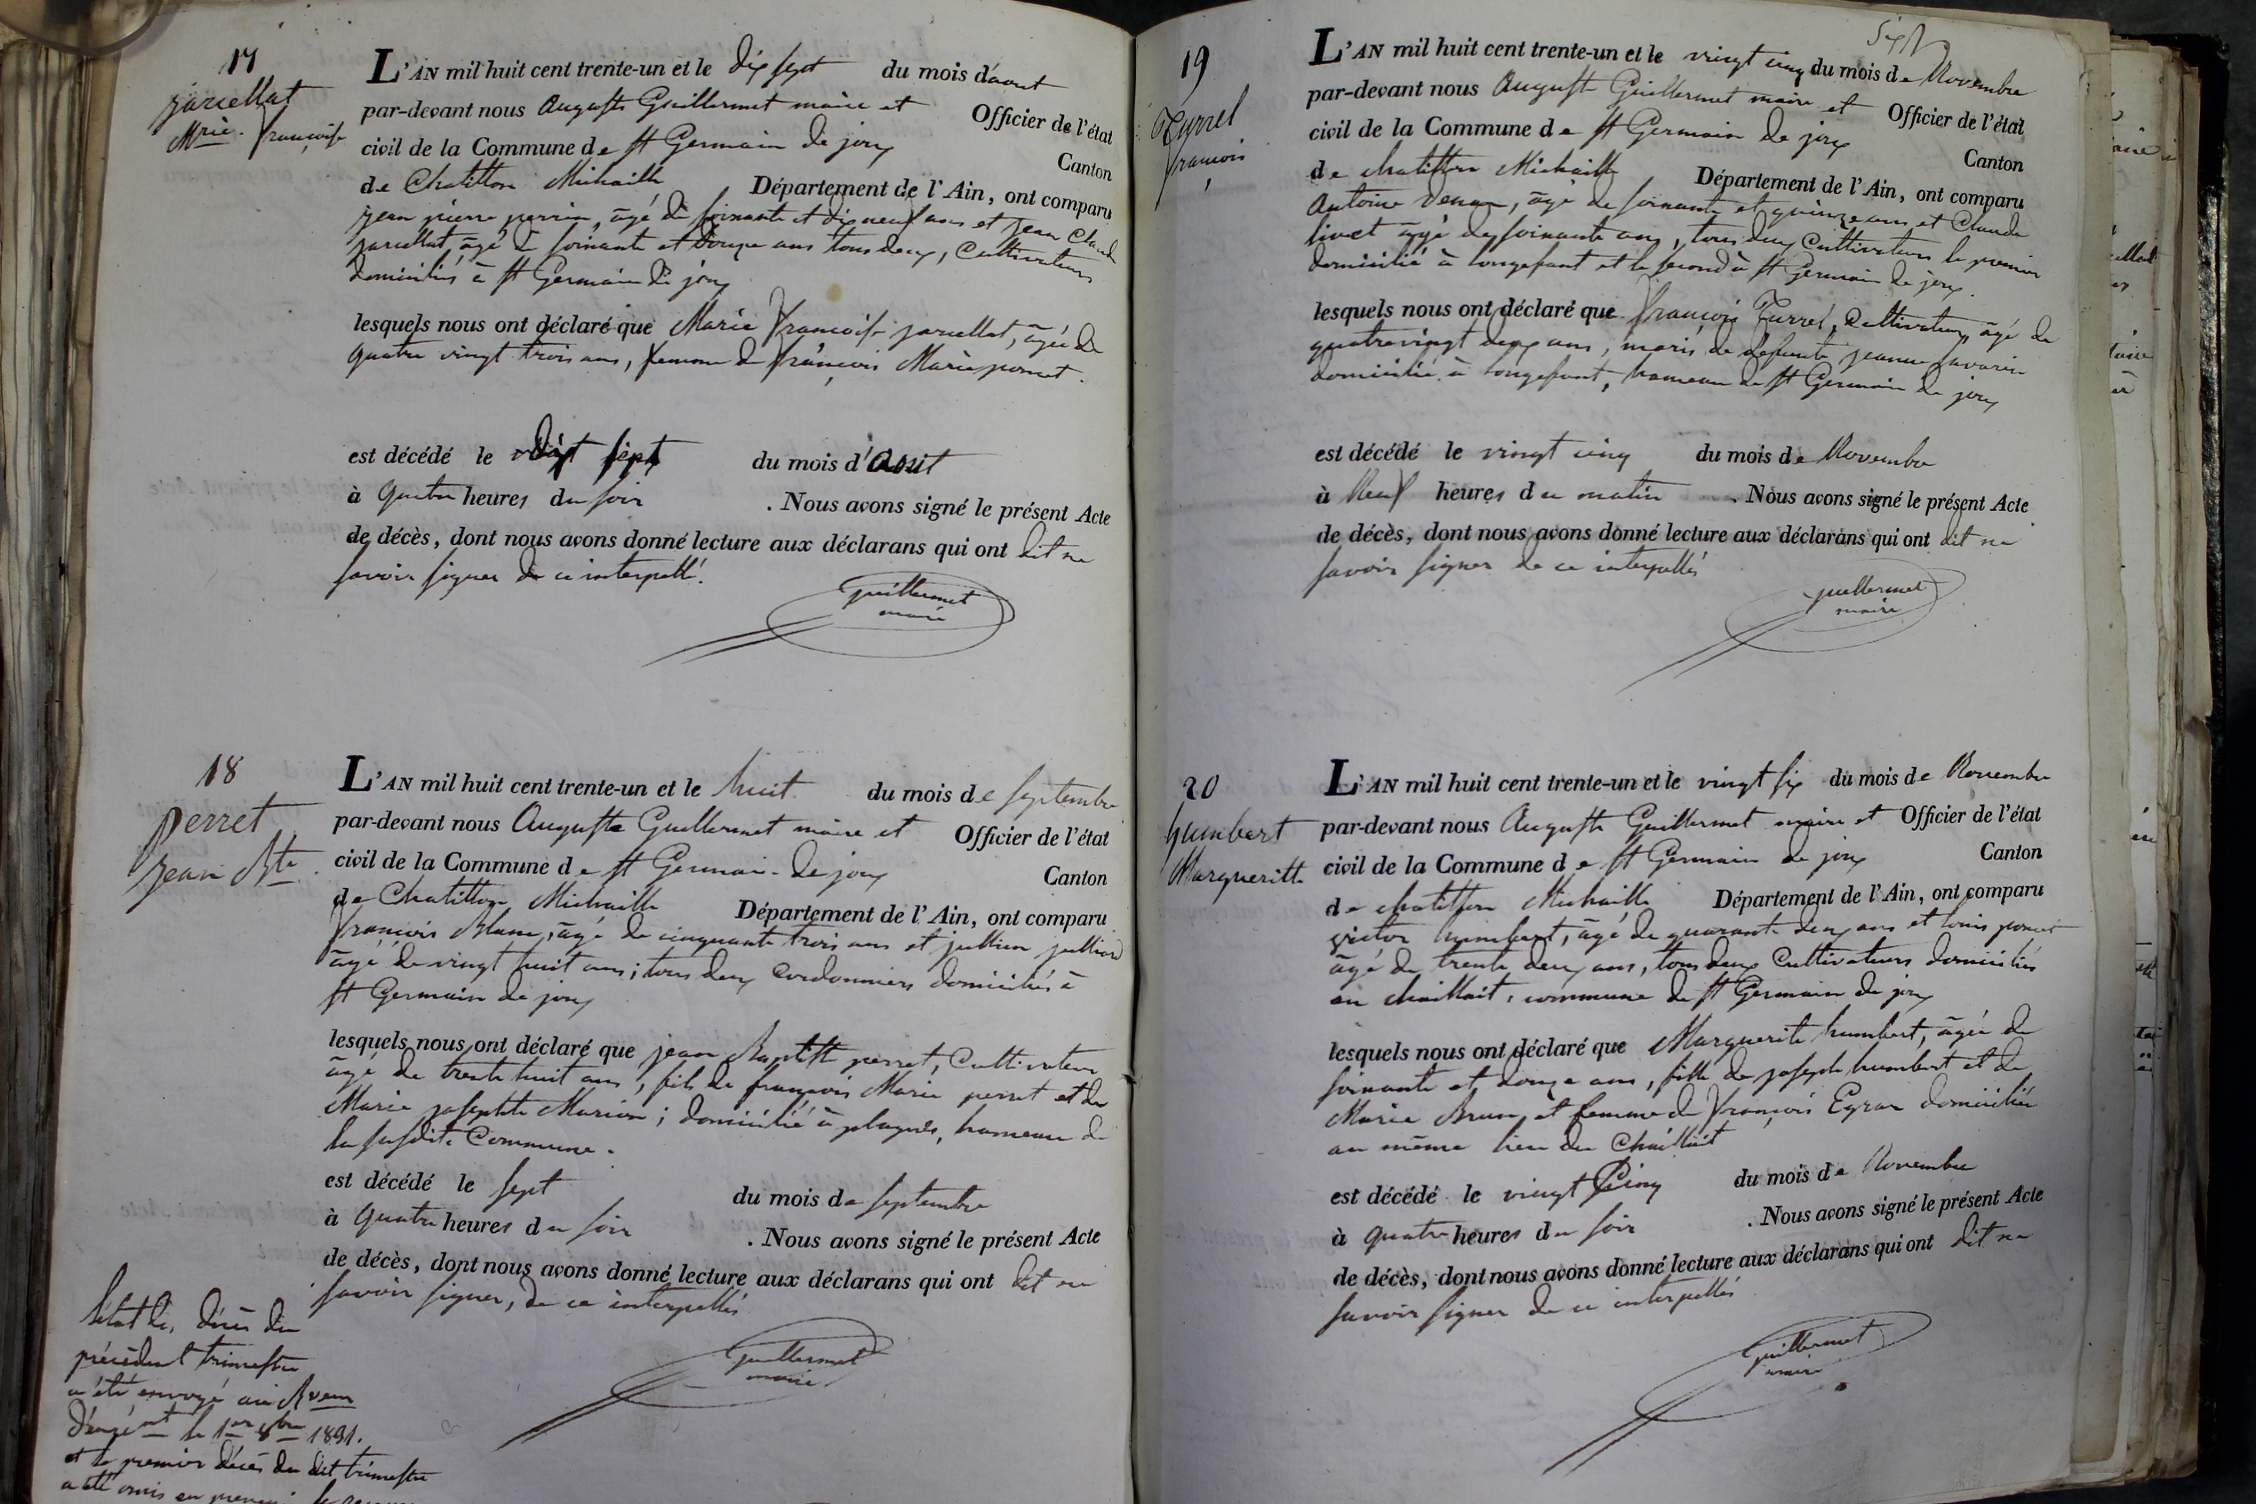 17
jarcellat
Mrie. françoise
L'AN mil huit cent trente-un et le dix sept du mois d'aout
par-devant nous Auguste Guillermet maire et Officier de l'état
civil de la Commune de st Germain de joux Canton
de Chatillon Michaille Département de l'Ain, ont comparu
jean pierre perrin, âgé de soixante et dix neuf ans et jean claude
jarcellat, âgé de soixante et douze ans tous deux, Cultivateurs
domiciliés à st Germain de joux
lesquels nous ont déclaré que Marie françoise jarcellat, âgée de
quatre vingt trois ans, femme de françois Marie poncet.
est décédé le dix sept du mois d'Aout
à quatre heures du soir . Nous avons signé le présent Acte
de décès, dont nous avons donné lecture aux déclarans qui ont dit ne
savoir signer de ce interpellé.
guillermet
maire
18
perret
jean Bte
L'AN mil huit cent trente-un et le huit du mois de septembre
par-devant nous Auguste Guillermet maire et Officier de l'état
civil de la Commune de st Germain de joux Canton
de Chatillon Michaille Département de l'Ain, ont comparu
françois Blanc, âgé de cinquante trois ans et jullien jullion
âgé de vingt huit ans; tous deux Cordonniers domiciliés à
st Germain de joux
lesquels nous ont déclaré que jean Baptiste perret, Cultivateur
âgé de trente huit ans, fils de françois Marie perret et de
Marie josephte Marion; domicilié à plagnes, hameau de
la susdite Commune.
est décédé le sept du mois de septembre
à quatre heures du soir . Nous avons signé le présent Acte
de décès, dont nous avons donné lecture aux déclarans qui ont dit ne
savoir signer, de ce interpellés
guillermet
maire
L'état de, décès du
précédent trimestre
a été envoyé au
le 1er 8bre 1831.
et le premier décès du dit trimestre
a été omis en
19
Turrel
françois
L'AN mil huit cent trente-un et le vingt cinq du mois de Novembre
par-devant nous Auguste Guillermet maire et Officier de l'état
civil de la Commune de st Germain de joux Canton
de chatillon Michaille Département de l'Ain, ont comparu
Antoine , âgé de soixante et quinze ans et Claude
livet âgé de soixante ans, tous deux Cultivateurs le premier
domicilié à longefant et le second à st Germain de joux.
lesquels nous ont déclaré que françois Turrel, Cultivateur, âgé de
quatre vingt deux ans, maris de defunte jeanne savarin
domicilié à longefant, hameau de st Germain de joux
est décédé le vingt cinq du mois de Novembre
à Neuf heures du matin . Nous avons signé le présent Acte
de décès, dont nous avons donné lecture aux déclarans qui ont dit ne
savoir signer de ce interpellés
guillermet
maire
20
humbert
Margueritte
L'AN mil huit cent trente-un et le vingt six du mois de Novembre
par-devant nous Auguste Guillermet maire et Officier de l'état
civil de la Commune de st Germain de joux Canton
de chatillon Michaille Département de l'Ain, ont comparu
victor humbert, âgé de quarante deux ans et louis poncet
âgé de trente deux ans, tous deux Cultivateurs domiciliés
au chaillait, commune de st Germain de joux
lesquels nous ont déclaré que Marguerite humbert, âgée de
soixante et douze ans, fille de joseph humbert et de
Marie Brun, et femme de françois Egraz domiciliée
au même lieu du Chaillait
est décédé le vingt Cinq du mois de Novembre
à quatre heures du soir . Nous avons signé le présent Acte
de décès, dont nous avons donné lecture aux déclarans qui ont dit ne
savoir signer de ce interpellés
guillermet
maire